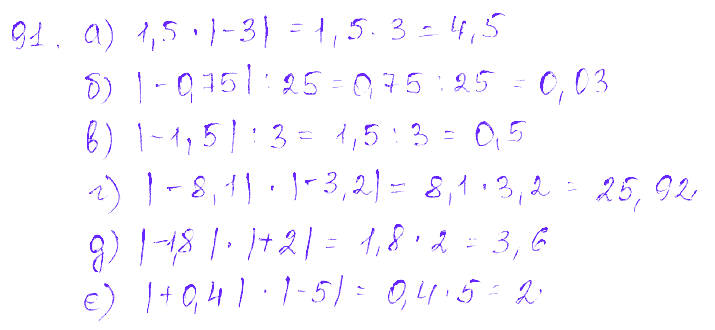 91. а) 1,5 · |-3| = 1,5 · 3 = 4,5
б) |-0,75| : 25 = 0,75 : 25 = 0,03
в) |-1,5| : 3 = 1,5 : 3 = 0,5
г) |-8,1| · |-3,2| = 8,1 · 3,2 = 25,92
д) |-1,8| · |+2| = 1,8 · 2 = 3,6
е) |+0,4| · |-5| = 0,4 · 5 = 2.